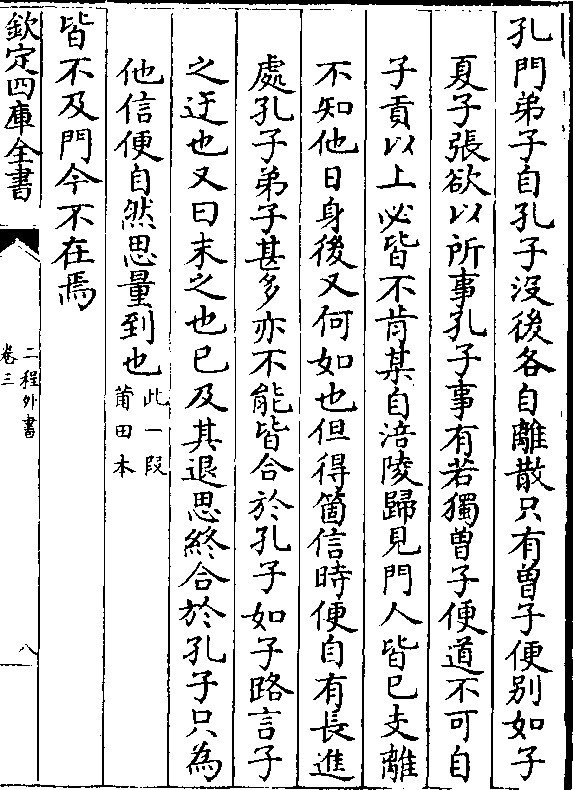 孔門弟子自孔子沒後各自離散只有曽子便别如子
夏子張欲以所事孔子事有若獨曽子便道不可自
子貢以上必皆不肯某自涪陵歸見門人皆已支離
不知他日身後又何如也但得箇信時便自有長進
處孔子弟子甚多亦不能皆合於孔子如子路言子
之迂也又曰末之也已及其退思終合於孔子只為
他信便自然思量到也此一段莆田本
皆不及門今不在焉
欽定四庫全書
二程外書
卷三
八